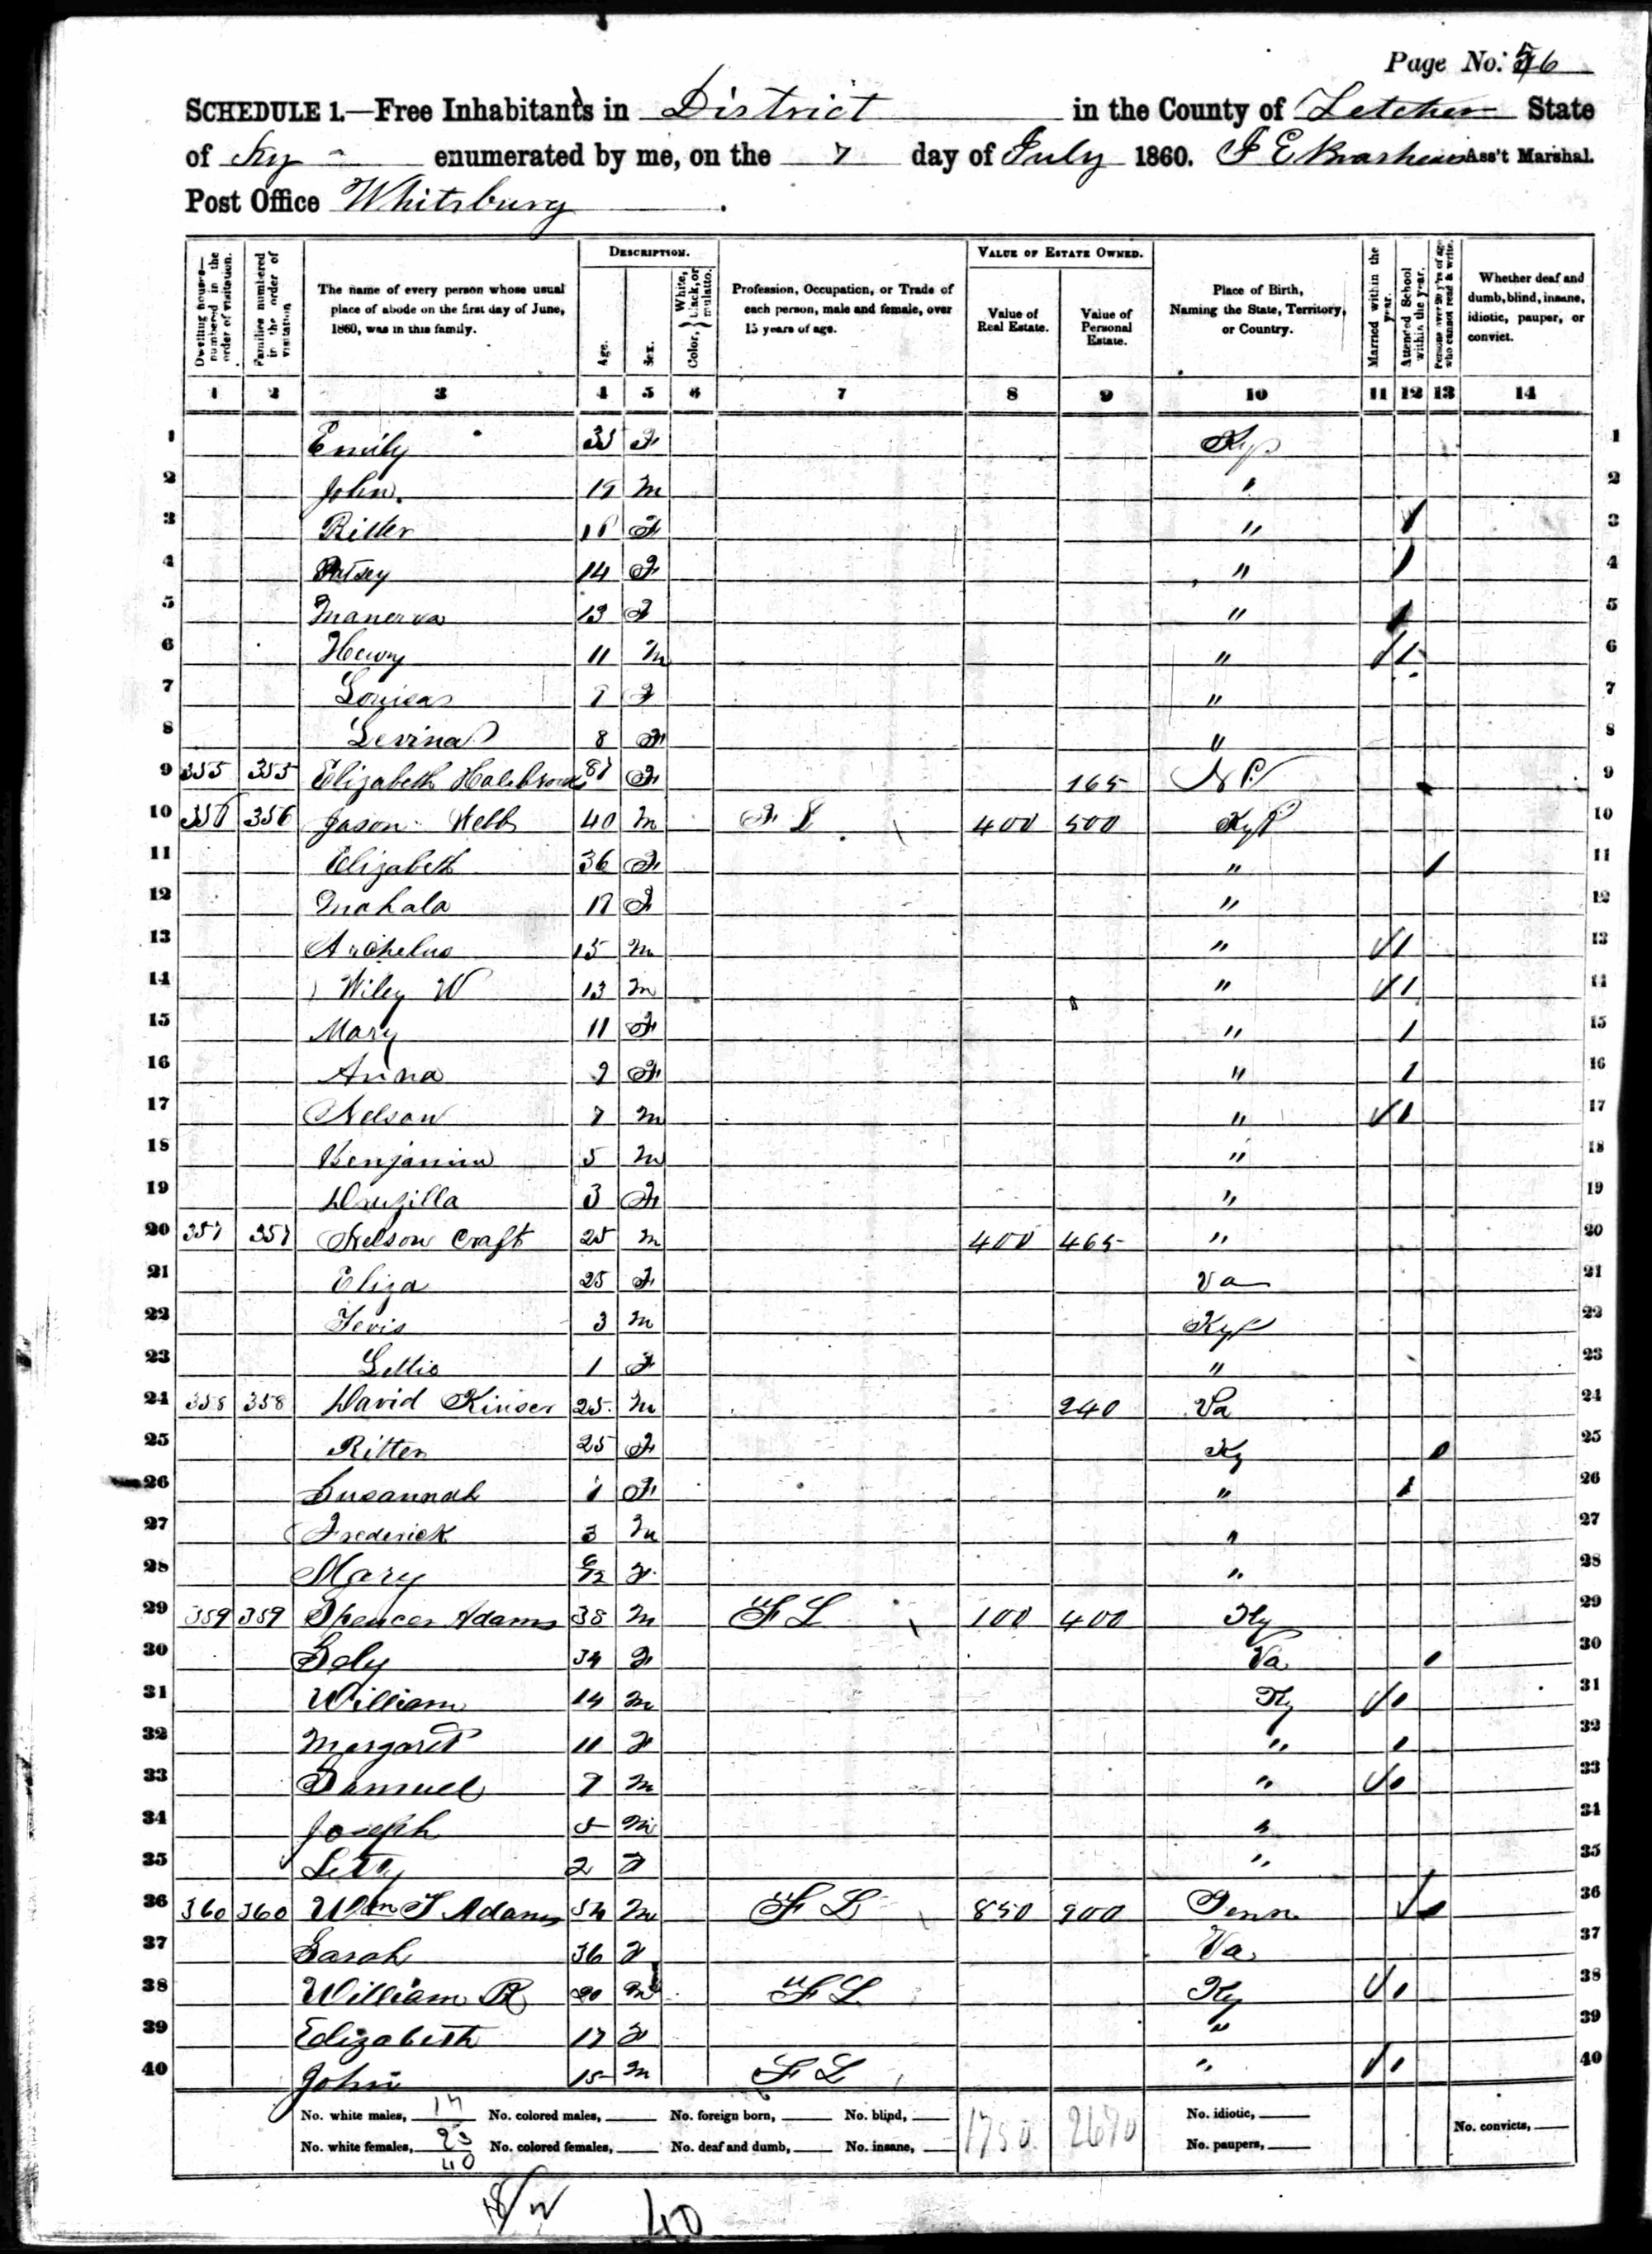 Page No. 56
SCHEDULE 1.—Free Inhabitants in District in the County of Letcher State
of Ky enumerated by me, on the 7 day of July 1860. Ass't Marshal.
Post Office Whitsburg.
Dwelling houses—numbered in the order of visitation.
Families numbered in the order of visitation
The name of every person whose usual place of abode on the first day of June, 1860, was in this family.
DESCRIPTION.
Age.
Sex.
Color, White, black, or mulatto.
Profession, Occupation, or Trade of each person, male and female, over 15 years of age.
VALUE OF ESTATE OWNED.
Value of Real Estate.
Value of Personal Estate.
Place of Birth, Naming the State, Territory, or Country.
Married within the year.
Attended School within the year.
Persons over 20 y'rs of age who cannot read & write.
Whether deaf and dumb, blind, insane, idiotic, pauper, or convict.
1 2 3 4 5 6 7 8 9 10 11 12 13 14
1 Emily 35 F Ky 1
2 John 19 m " 2
3 Ritter F " / 3
4 Patsey 14 F " / 4
5 Manerva 13 F " / 5
6 Henry 11 m " √ / 6
7 Louisa F " 7
8 Levina 8 F " 8
9 355 355 Elizabeth 87 F 165 NC 9
10 356 356 Jason Webb 40 m F L 400 500 Ky 10
11 Elizabeth 36 F " / 11
12 Mahala F " 12
13 Archelus 15 m " √ 1 13
14 Wiley W 13 m " √ 1 14
15 Mary 11 F " 1 15
16 Anna 9 F " 1 16
17 Nelson 7 m " √ 1 17
18 Benjamin 5 m " 18
19 Druzilla 3 F " 19
20 357 357 Nelson Craft 25 m 400 465 " 20
21 Eliza 25 F Va 21
22 3 m Ky 22
23 Lettie 1 F " 23
24 358 358 David Kinser 25 m 240 Va 24
25 Ritter 25 F Ky 1 25
26 Susannah F " 1 26
27 Frederick 3 m " 27
28 Mary 6/12 F " 28
29 359 359 Spencer Adams 38 m F L 100 400 Ky 29
30 34 F Va 1 30
31 William 14 m Ky √ 1 31
32 Margaret 11 F " 1 32
33 Samuel 7 m " √ 1 33
34 Joseph 5 m " 34
35 Letty 2 F " 35
36 360 360 Wm Adams 54 m F L 850 900 Tenn √ 1 36
37 Sarah 36 F Va 37
38 William R 20 m F L Ky √ 1 38
39 Elizabeth 17 F " 39
40 John 15 m F L " √ 1 40
No. white males, 17 No. colored males, No. foreign born, No. blind, 1750 2670 No. idiotic, No. convicts,
No. white females, 23 No. colored females, No. deaf and dumb, No. insane, No. paupers,
40
40